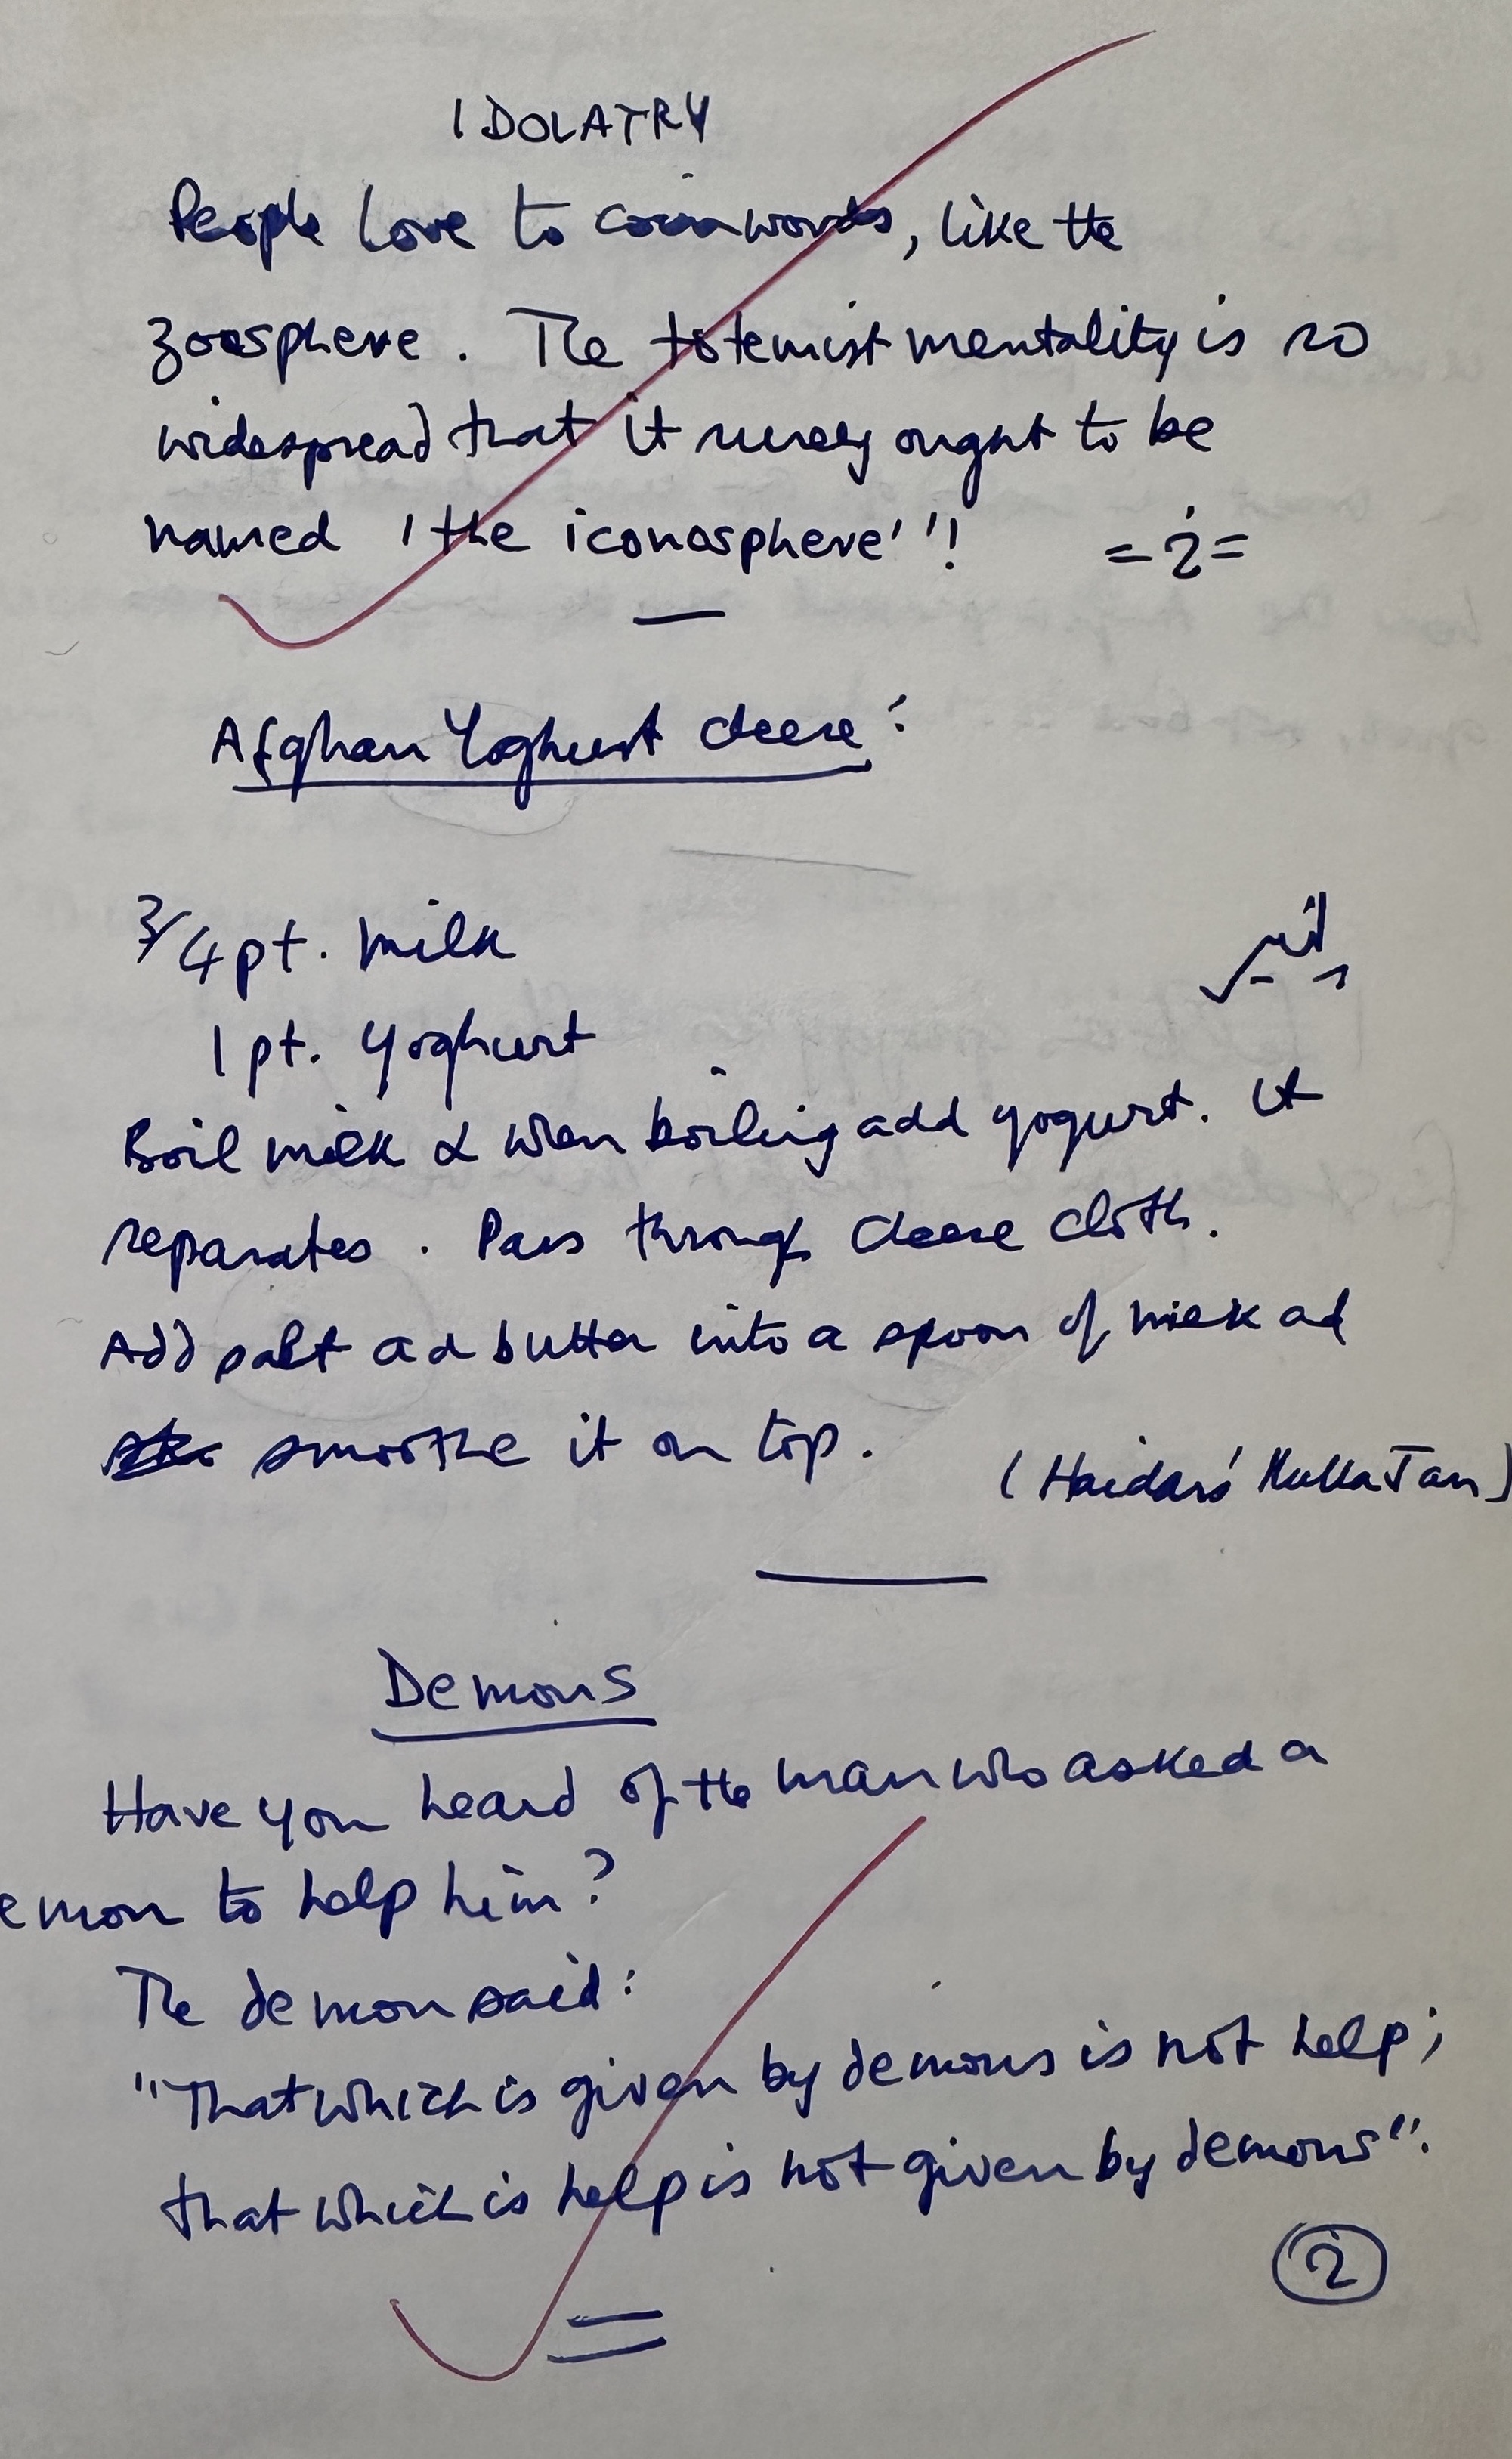 IDOLATRY
People love to coin words, like the
zoosphere. The totemist mentality is so
widespread that it surely ought to be
named 'the iconosphere''!
Afghan Yoghurt cheese:
3/4 pt. milk
پنیر
1 pt. yoghurt
Boil milk & when boiling add yogurt. It
separates. Pass through cheese cloth.
Add salt ad butter into a spoon of milk ad
smoothe it on top.
(Haidar's Mulla Jan)
Demons
Have you heard of the man who asked a
emon to help him?
The demon said:
"That which is given by demons is not help;
that which is help is not given by demons".